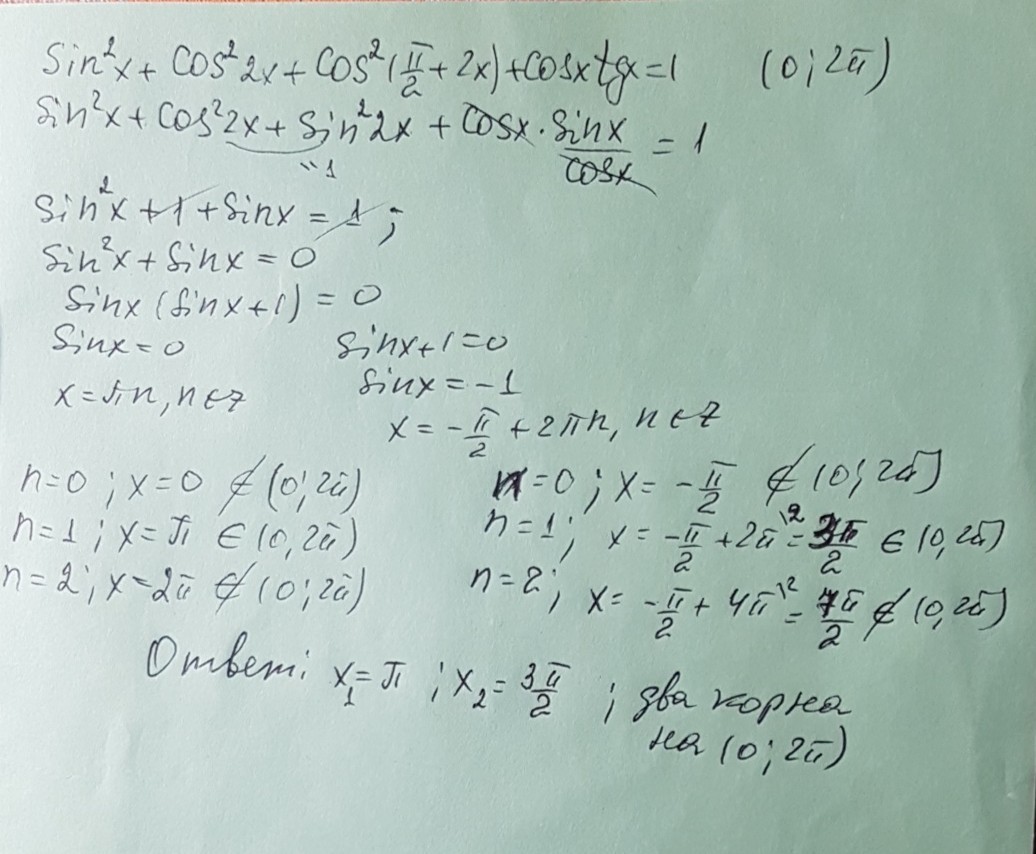 sin²x + cos²2x + cos²(π/2 + 2x) + cosx tgx = 1 (0; 2π)
sin²x + cos²2x + sin²2x + cosx · sinx/cosx = 1
"1
sin²x + 1 + sinx = 1;
sin²x + sinx = 0
sinx (sinx + 1) = 0
sinx = 0 sinx + 1 = 0
x = πn, n ∈ Z sinx = -1
x = -π/2 + 2πn, n ∈ Z
n=0; x=0 ∉ (0; 2π) n=0; x = -π/2 ∉ (0; 2π)
n=1; x=π ∈ (0, 2π) n=1; x = -π/2 + 2π\2 = 3π/2 ∈ (0, 2π)
n=2; x=2π ∉ (0; 2π) n=2; x = -π/2 + 4π\2 = 7π/2 ∉ (0, 2π)
Ответ: x₁ = π; x₂ = 3π/2; два корня
на (0; 2π)